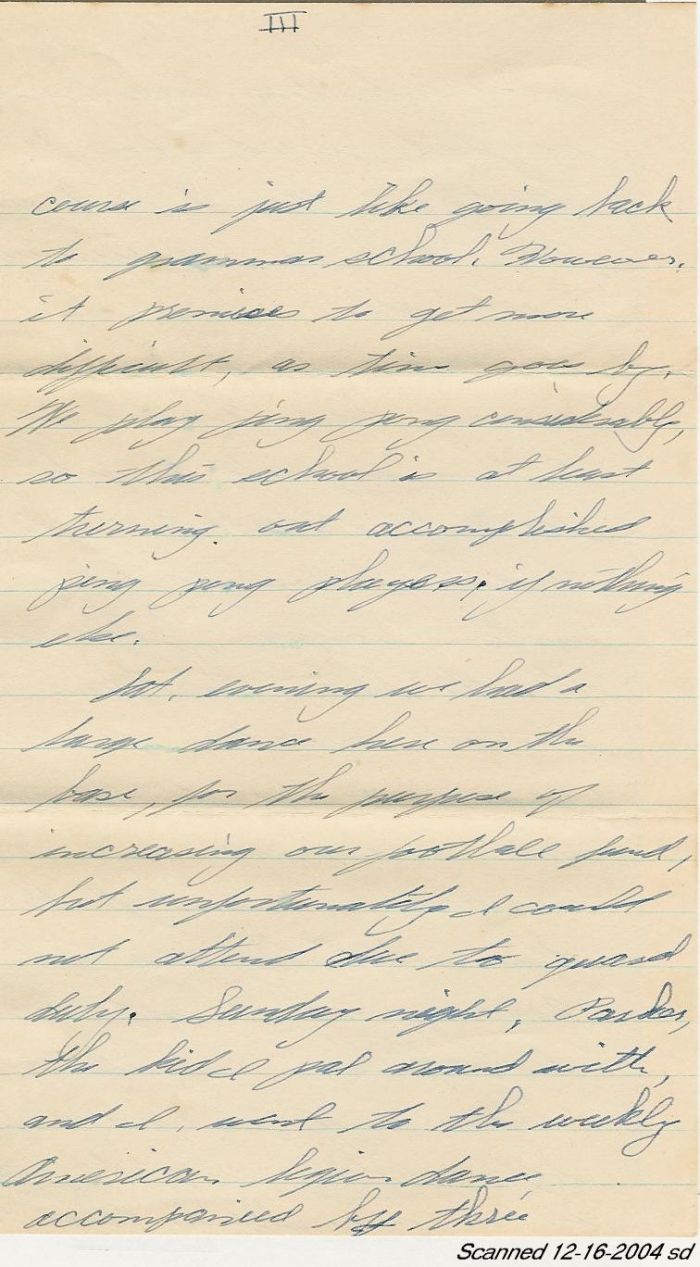 III
course is just like going back
to grammar school. However,
it promises to get more
difficult, as time goes by.
We play ping pong considerably,
so this school is at least
turning out accomplished
ping pong players, if nothing
else.
Sat. evening we had a
large dance here on the
base, for the purpose of
increasing our football fund,
but unfortunately I could
not attend due to guard
duty. Sunday night,
the kid I pal around with,
and I, went to the weekly
American legion dance
accompanied by three
Scanned 12-16-2004 sd